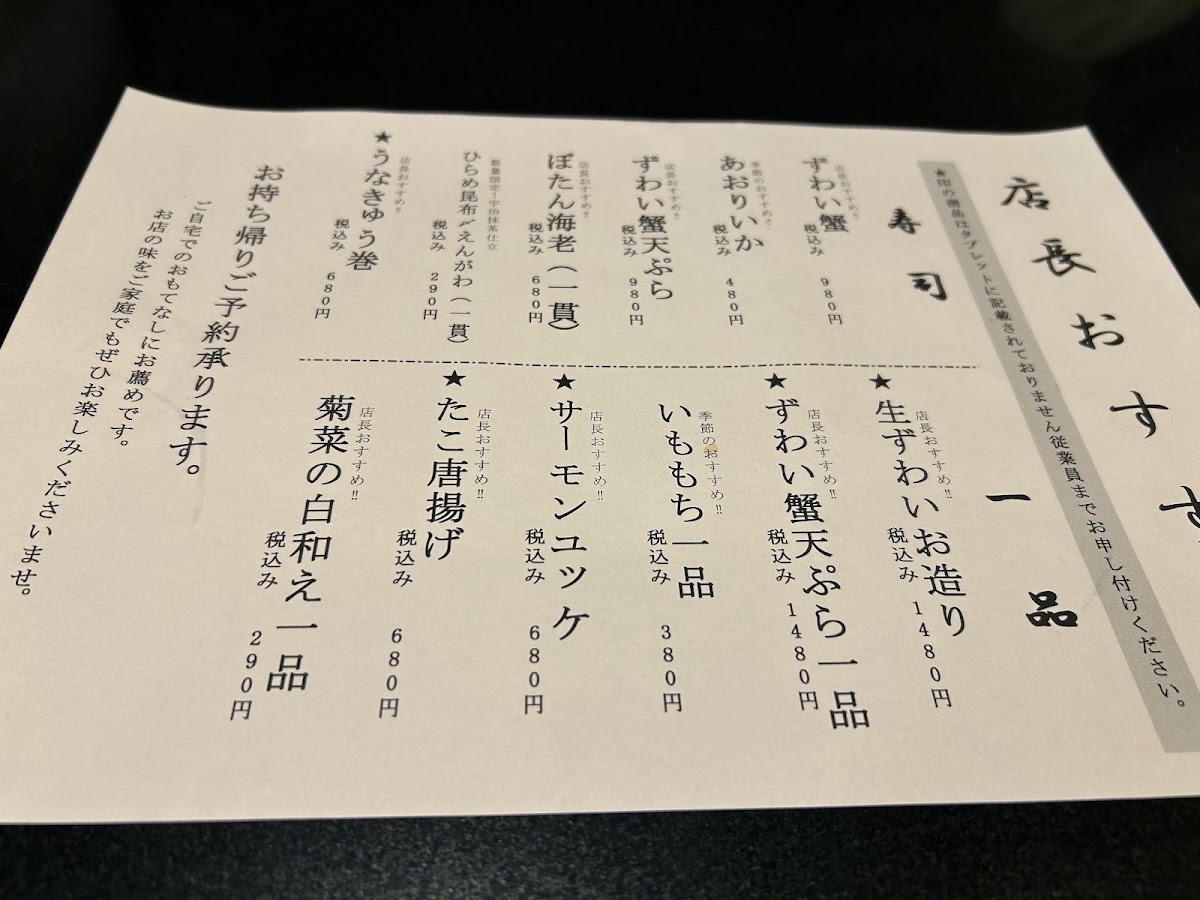 店長おすす
★印の商品はタブレットに記載されておりません従業員までお申し付けください。
寿司
店長おすすめ!!
ずわい蟹
税込み 980円
季節のおすすめ!!
あおりいか
税込み 480円
店長おすすめ!!
ずわい蟹天ぷら
税込み 980円
店長おすすめ!!
ぼたん海老(一貫)
税込み 680円
数量限定!宇治抹茶仕立
ひらめ昆布〆えんがわ(一貫)
税込み 290円
店長おすすめ!!
★うなきゅう巻
税込み 680円
一品
店長おすすめ!!
★生ずわいお造り
税込み 1480円
店長おすすめ!!
★ずわい蟹天ぷら一品
税込み 1480円
季節のおすすめ!!
いももち一品
税込み 380円
店長おすすめ!!
★サーモンユッケ
税込み 680円
店長おすすめ!!
★たこ唐揚げ
税込み 680円
店長おすすめ!!
菊菜の白和え一品
税込み 290円
お持ち帰りご予約承ります。
ご自宅でのおもてなしにお薦めです。
お店の味をご家庭でもぜひお楽しみくださいませ。